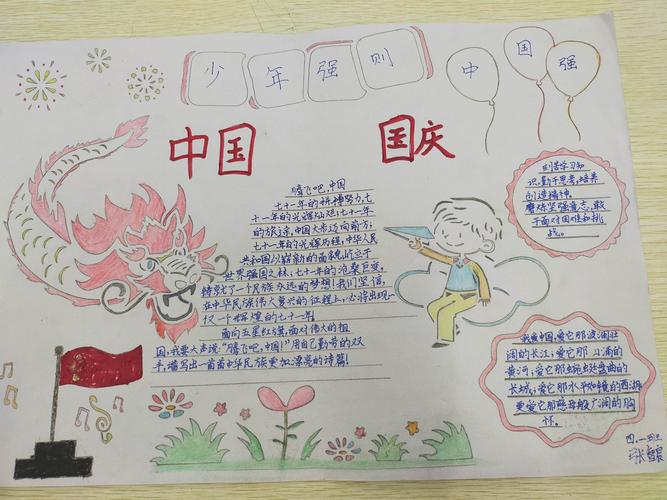 少年强则
中国强
中国 国庆
腾飞吧,中国
七十一年的拼搏努力,七
十一年的光辉灿烂,七十一年
的旅途,中国大步迈向前方,
七十一年的光辉历程,中华人民
共和国以崭新的面貌屹立于
世界强国之林,七十一年的沧桑巨变,
铸就了一个民族永远的梦想!我们坚信,
在中华民族伟大复兴的征程上,必将出现
又一个辉煌的七十一年!
面向五星红旗,面对伟大的祖
国,我要大声说:"腾飞吧,中国!"用自己勤劳的双
手,描写出一首首中华民族更加漂亮的诗篇!
刻苦学习知
识,勤于思考,培养
创造精神。
磨炼坚强意志,敢
于面对困难和挑
战。
我爱中国,爱它那波澜壮
阔的长江;爱它那
黄河;爱它那蜿蜒盘曲的
长城;爱它那水平如镜的西湖
更爱它那慈母般广阔的胸
怀。
四.一班